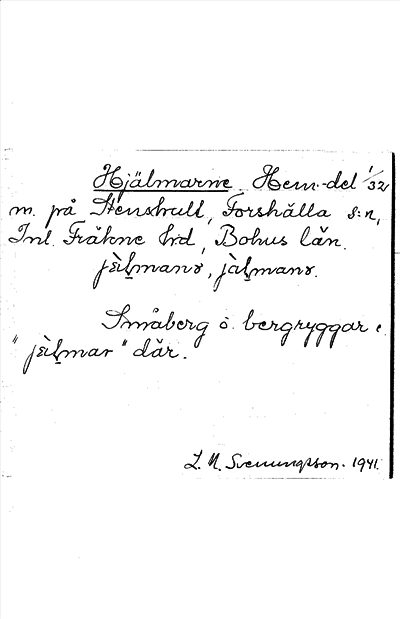 Hjälmarne Hem.-del 1/32
m. på Stenshult, Forshälla s:n,
Inl. Fräkne hrd, Bohus län.
jèl̥manɤ, jàl̥manɤ.
Småberg o. bergryggar
"jèl̥mar" där.
L. M. Svenungsson. 1941.